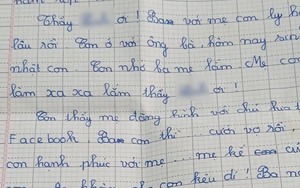 Thầy ơi! Ba với mẹ con ly h
lâu rồi. Con ở với ông bà, hôm nay sinh
nhật con. Con nhớ ba mẹ lắm. Mẹ con
làm xa xa lắm thầy ơi!
Con thấy mẹ đăng hình với chú hứa t
Facebook Ba con thì cưới vợ rồi,
con hạnh phúc với mẹ... mẹ kế của cu
con kêu dì! Ba n